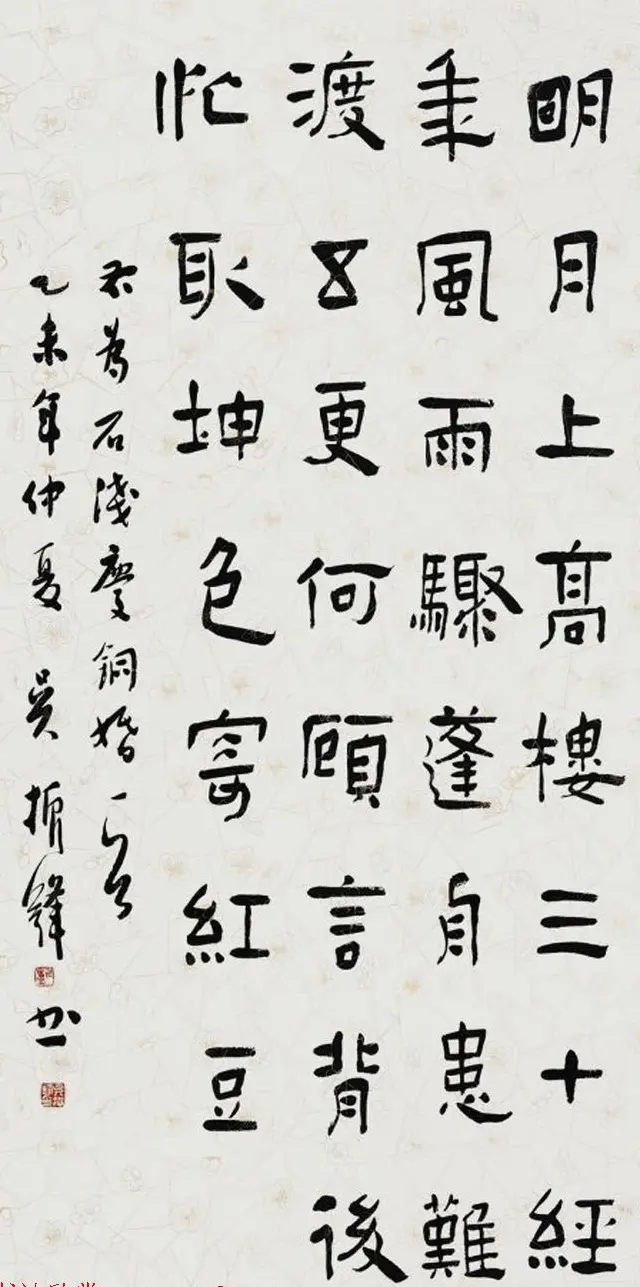 明月上髙樓三十經
秊風雨驟蓬身患難
渡五更何顧言背後
忙取坤色寄紅豆
為石淺慶銅婚
乙未年仲夏 吳振鋒 书